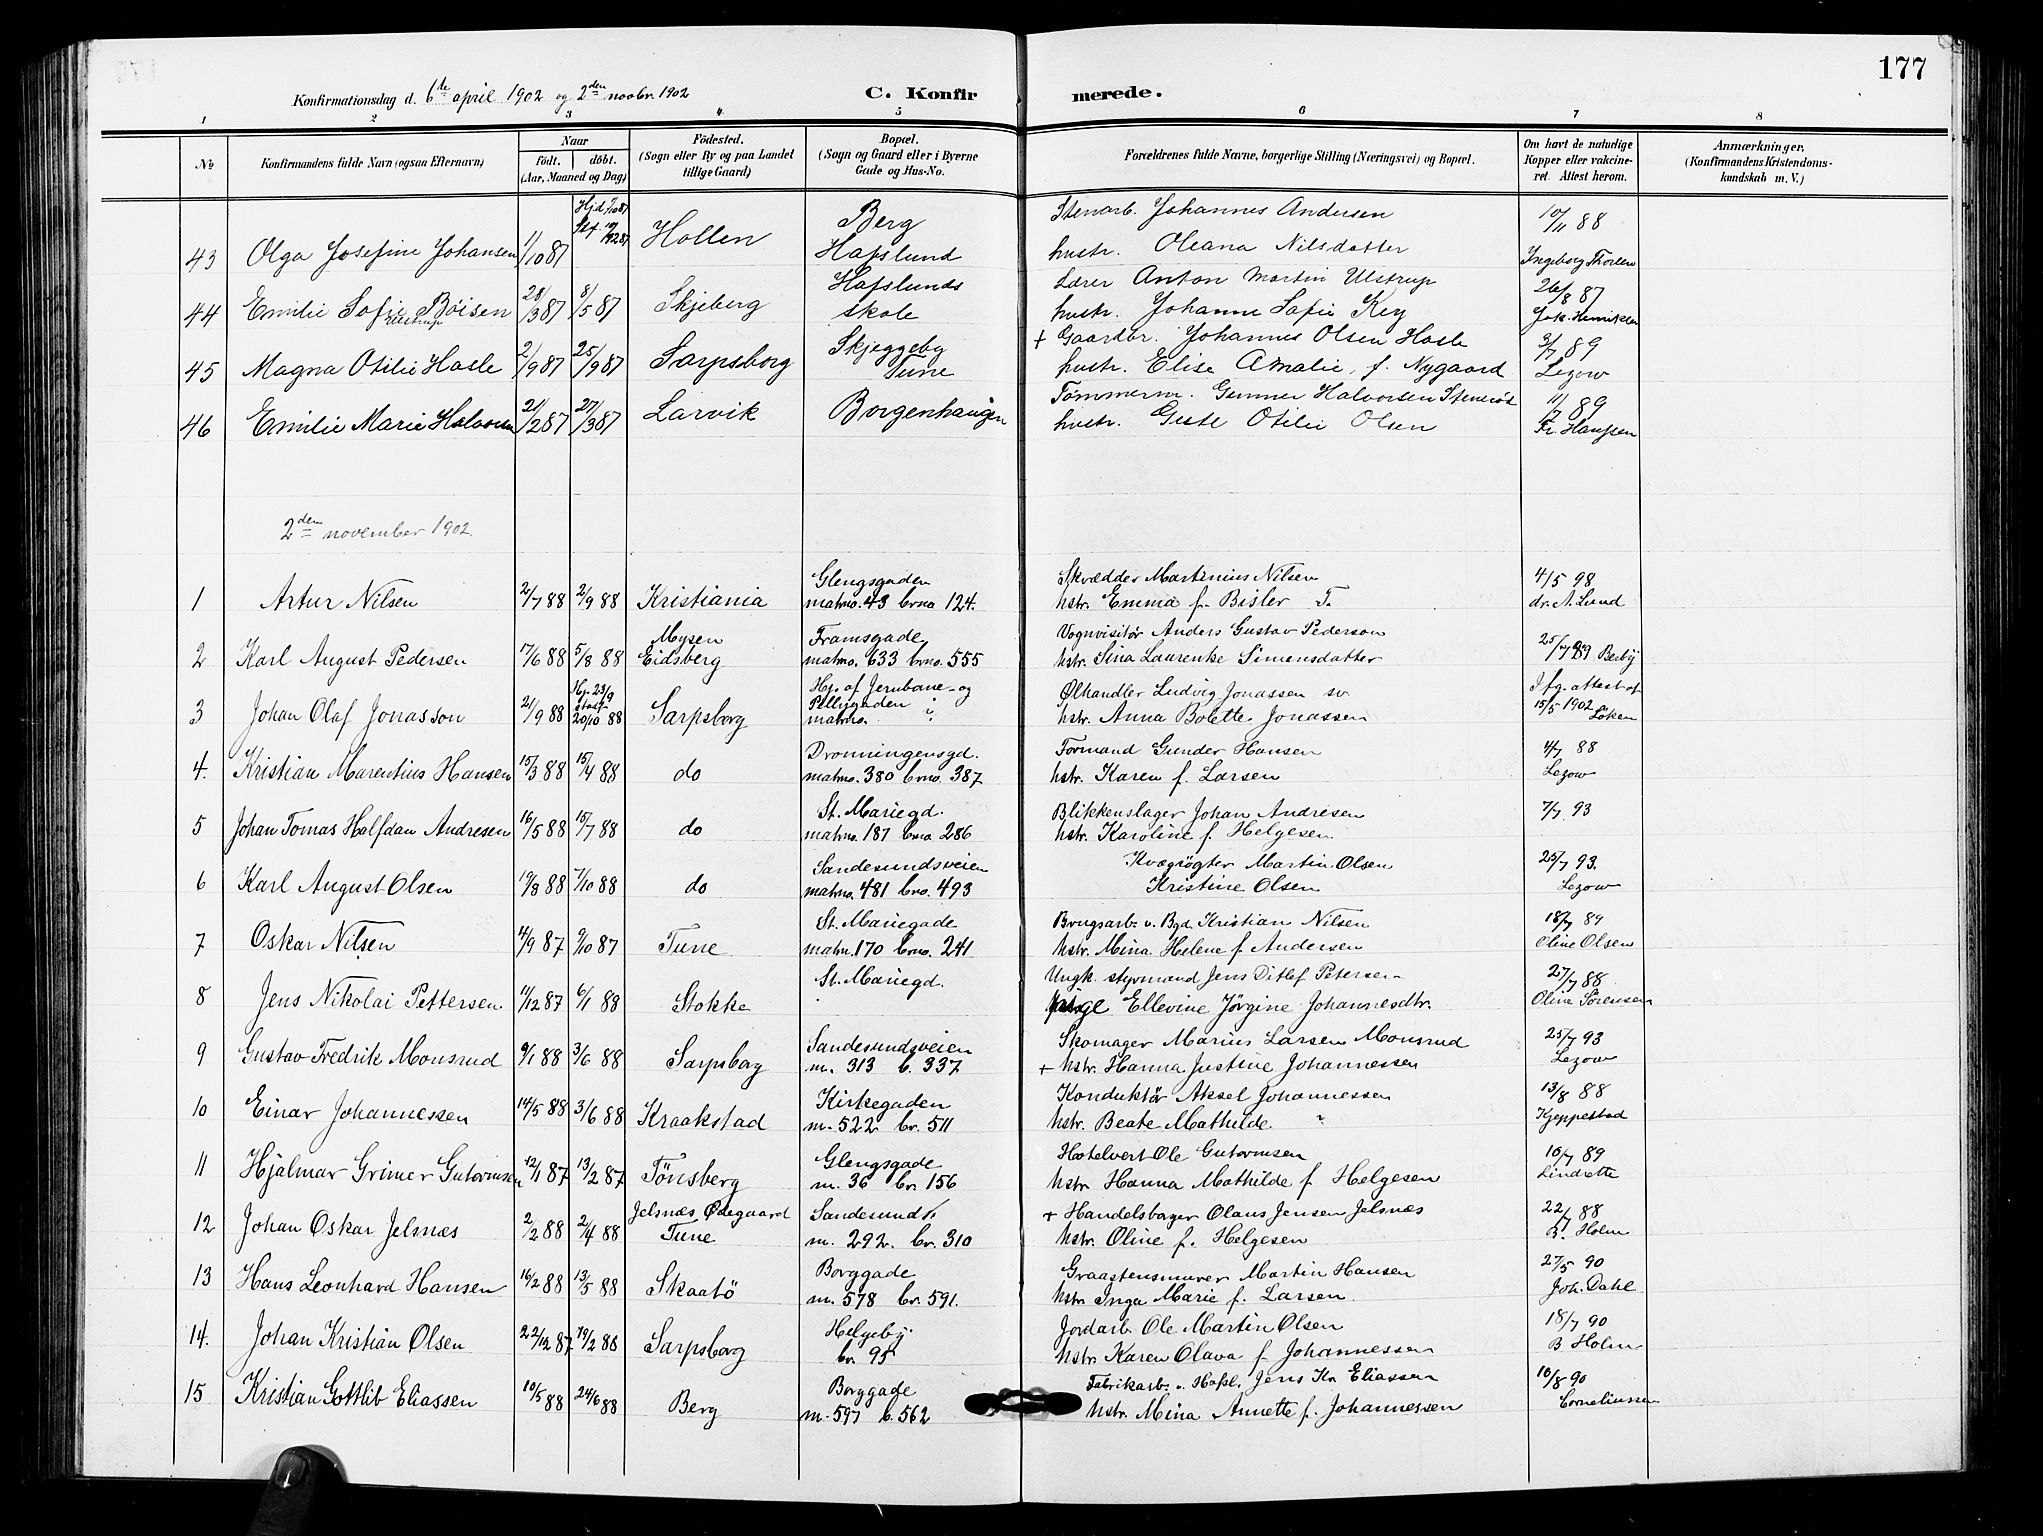 177
Konfirmationsdag d. 6te april 1902 og 2den novbr. 1902
C. Konfirmerede.
1 2 3 4 5 6 7 8
No
Konfirmandens fulde Navn (ogsaa Efternavn)
Naar
födt. döbt.
(Aar, Maaned og Dag)
Födested.
(Sogn eller By og paa Landet
tillige Gaard)
Bopæl.
(Sogn og Gaard eller i Byerne
Gade og Hus-No.
Forældrenes fulde Navne, borgerlige Stilling (Næringsvei) og Bopæl.
Om havt de naturlige
Kopper eller vakcine-
ret. Attest herom.
Anmærkninger,
(Konfirmandens Kristendoms-
kundskab m. V.)
43 Olga Josefine Johansen 1/10 87 Hollen
Berg
Hafslund
Stenarb. Johannes Andersen
hustr. Oleana Nilsdatter
10/11 88
Ingeborg Thorsen
44 Emilie Sofie Böisen 28/3 87 8/5 87 Skjeberg
Ulstrup
Hafslunds
skole
Lærer Anton Martin Ulstrup
hustr. Johanne Sofie Key
26/8 87
Joh. Henriksen
45 Magna Otilie Hasle 2/9 87 25/9 87 Sarpsborg
Skjeggeby
Tune
+ Gaardbr. Johannes Olsen Hasle
hustr. Elise Amalie, f. Nygaard
3/7 89
Lezow
46 Emilie Marie Halvorsen 21/2 87 27/3 87 Larvik Borgenhaugen
Tømmerm. Gunner Halvorsen
hustr. Gusta Otilie Olsen
11/7 89
Fr. Hanssen
2den november 1902.
1 Artur Nilsen 2/7 88 2/9 88 Kristiania
Glengsgaden
matrno. 43 brno 124.
Skrædder Martinius Nilsen
hstr. Emma f. Bisler
4/5 98
dr. A. Lund
2 Karl August Pedersen 17/6 88 5/8 88
Mysen
Eidsberg
Framsgade
matrno. 633 brno. 555
Vognvisitör Anders Gustav Pederson
hstr. Sina Laurentse Simensdatter
25/7 89 Berby
3 Johan Olaf Jonasson 21/9 88
Hj. 23/9
stadf.
20/10 88
Sarpsborg
Hj. af Jernbane- og
Pellygaden
matrno.
Ølhandler Ludvig Jonassen sv
hstr. Anna Bolette Jonassen
Ifg. attest af
15/5 1902
Löken
4. Kristian Marentius Hansen 15/3 88 15/4 88 do
Dronningensgd.
matrno. 380 brno. 387
Formand Gunder Hansen
hstr. Karen f. Larsen
4/7 88
Lezow
5 Johan Tomas Halfdan Andresen 16/5 88 15/7 88 do
St. Mariegd.
matrno. 187 brno 286
Blikkenslager Johan Andresen
hstr. Karoline f. Helgesen
7/7 93
6 Karl August Olsen 19/8 88 7/10 88 do
Sandesundsveien
matrno 481 brno. 493
Kvægrögter Martin Olsen
Kristine Olsen
25/7 93.
Lezow
7 Oskar Nilsen 14/9 87 9/10 87 Tune
St. Mariegade
matrn. 170 brno. 241
Brugsarb. v. Bgd. Kristian Nilsen
hstr. Mina Helene f. Andersen
18/7 89
Oline Olsen
8 Jens Nikolai Pettersen 11/12 87 6/1 88 Stokke
St. Mariegd.
Ungk. styrmand Jens Ditlef Petersen
pige Ellevine Jörgine Johannesdtr.
27/7 88
Oline Sörensen
9 Gustav Fredrik Monsrud 9/1 88 3/6 88 Sarpsborg
Sandesundsveien
m. 313 b. 337
Skomager Marius Larsen Monsrud
+ hstr. Hanna Justine Johannessen
25/7 93
Lezow
10 Einar Johannessen 14/5 88 3/6 88 Kraakstad
Kirkegaden
m. 522 br. 511
Konduktör Aksel Johannessen
hstr. Beate Mathilde
13/8 88
Kjeppestad
11 Hjalmar Grimer Gutormsen 12/1 87 13/2 87 Tönsberg
Glengsgade
m. 36 br. 156
Hotelvert Ole Gutormsen
hstr. Hanna Mathilde f. Helgesen
10/7 89
12 Johan Oskar Jelsnæs 2/2 88 2/4 88
Jelsnæs Ødegaard
Tune
Sandesundv.
m. 292. br. 310
+ Handelsborger Olaus Jensen Jelsnæs
hstr. Oline f. Helgesen
22/7 88
B. Holm
13 Hans Leonhard Hansen 16/2 88 13/5 88 Skaatö
Borggade
m. 578 br. 591.
Graastensmurer Martin Hansen
hstr. Inga Marie f. Larsen
27/5 90
Joh. Dahl
14. Johan Kristian Olsen 22/12 87 19/2 88 Sarpsborg
Helgeby.
br. 95
Jordarb Ole Martin Olsen
hstr. Karen Olava f. Johannessen
18/7 90
B Holm
15 Kristian Gottlib Eliassen 10/5 88 24/6 88 Berg
Borggade
m. 597 b. 562
Fabrikarb. v. Hafsl. Jens Kr. Eliassen
hstr. Mina Annette f. Johannessen
10/8 90
Corneliussen